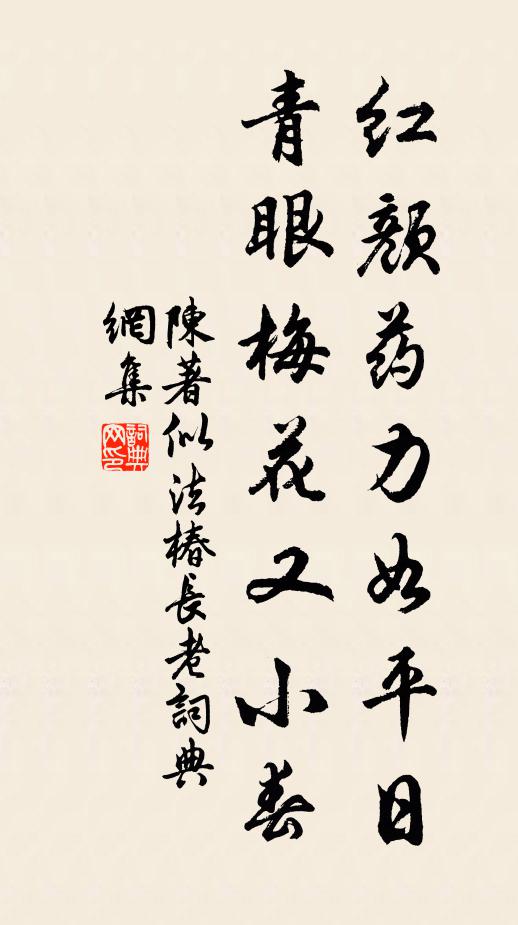 红颜药力如平日
青眼梅花又小春
陳著似法椿長老詞典
網集
詞典
网印